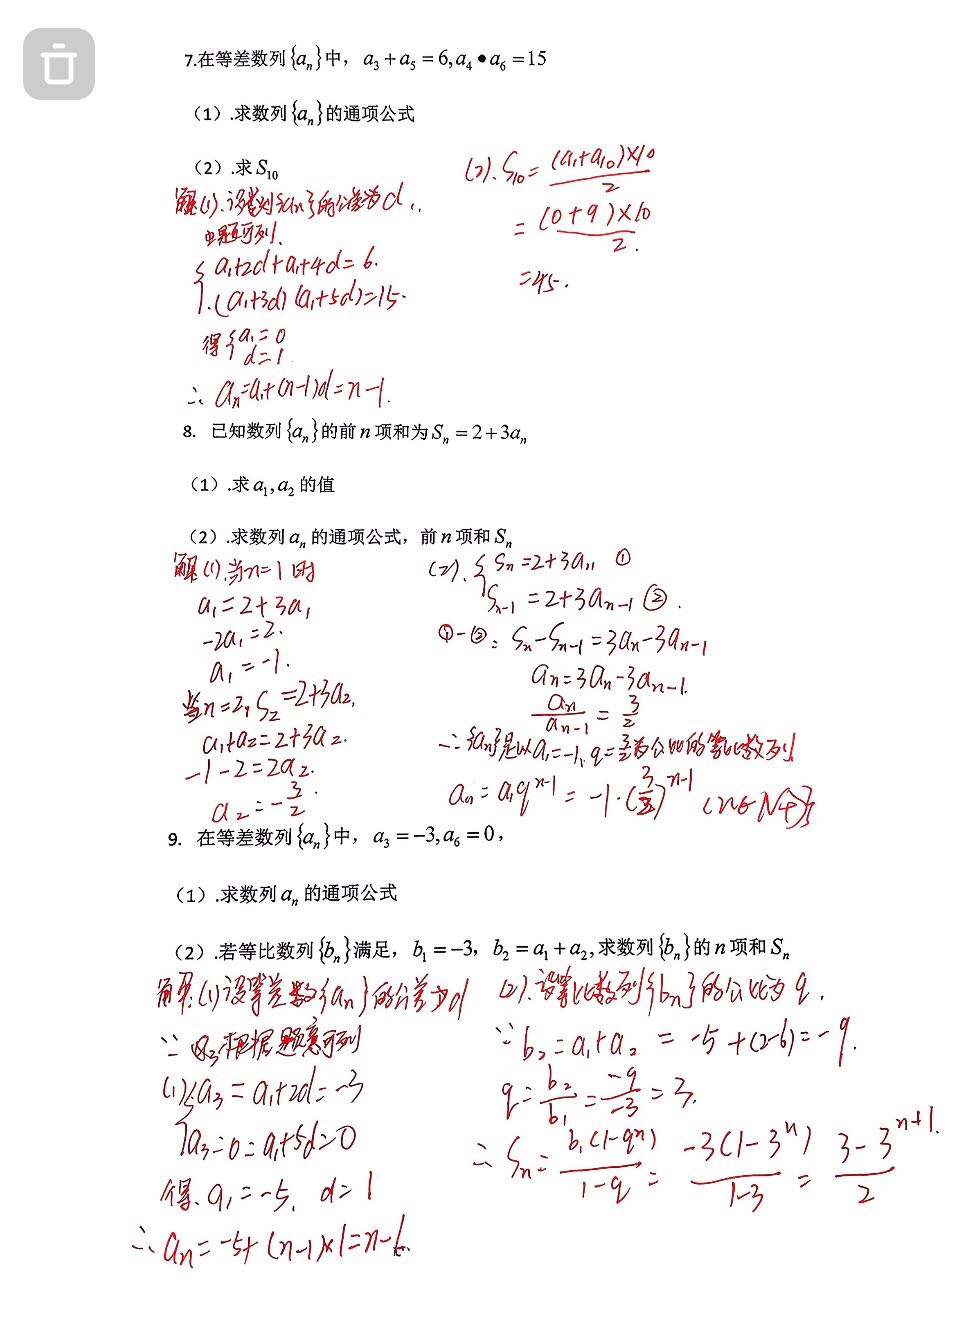 7.在等差数列{aₙ}中，a₃+a₅=6,a₄•a₆=15
（1）.求数列{aₙ}的通项公式
（2）.求S₁₀
解(1).设数列{aₙ}的公差为d.
由题可列.
{a₁+2d+a₁+4d=6.
(a₁+3d)(a₁+5d)=15.
得{a₁=0
d=1.
∴ aₙ=a₁+(n-1)d=n-1.
(2). S₁₀=(a₁+a₁₀)×10/2
=(0+9)×10/2.
=45.
8. 已知数列{aₙ}的前n项和为Sₙ=2+3aₙ
（1）.求a₁,a₂的值
（2）.求数列aₙ的通项公式，前n项和Sₙ
解(1).当n=1时
a₁=2+3a₁
-2a₁=2.
a₁=-1.
当n=2, S₂=2+3a₂,
a₁+a₂=2+3a₂.
-1-2=2a₂.
a₂=-3/2.
(2).{Sₙ=2+3aₙ ①
Sₙ₋₁=2+3aₙ₋₁ ②.
①-②: Sₙ-Sₙ₋₁=3aₙ-3aₙ₋₁
aₙ=3aₙ-3aₙ₋₁.
aₙ/aₙ₋₁=3/2
∴{aₙ}是以a₁=-1,q=3/2为公比的等比数列
aₙ=a₁qⁿ⁻¹=-1·(3/2)ⁿ⁻¹ (n∈N+)
9. 在等差数列{aₙ}中，a₃=-3,a₆=0，
（1）.求数列aₙ的通项公式
（2）.若等比数列{bₙ}满足，b₁=-3，b₂=a₁+a₂,求数列{bₙ}的n项和Sₙ
解:(1)设等差数{aₙ}的公差为d
∵ 根据题意可列
(1){a₃=a₁+2d=-3
a₃=0=a₁+5d=0
得.a₁=-5, d=1
∴ aₙ=-5+(n-1)×1=n-6.
(2).设等比数列{bₙ}的公比为q.
∵b₂=a₁+a₂=-5+(2-6)=-9.
q=b₂/b₁=-9/-3=3.
∴Sₙ=b₁(1-qⁿ)/1-q=-3(1-3ⁿ)/1-3=3-3ⁿ⁺¹/2.